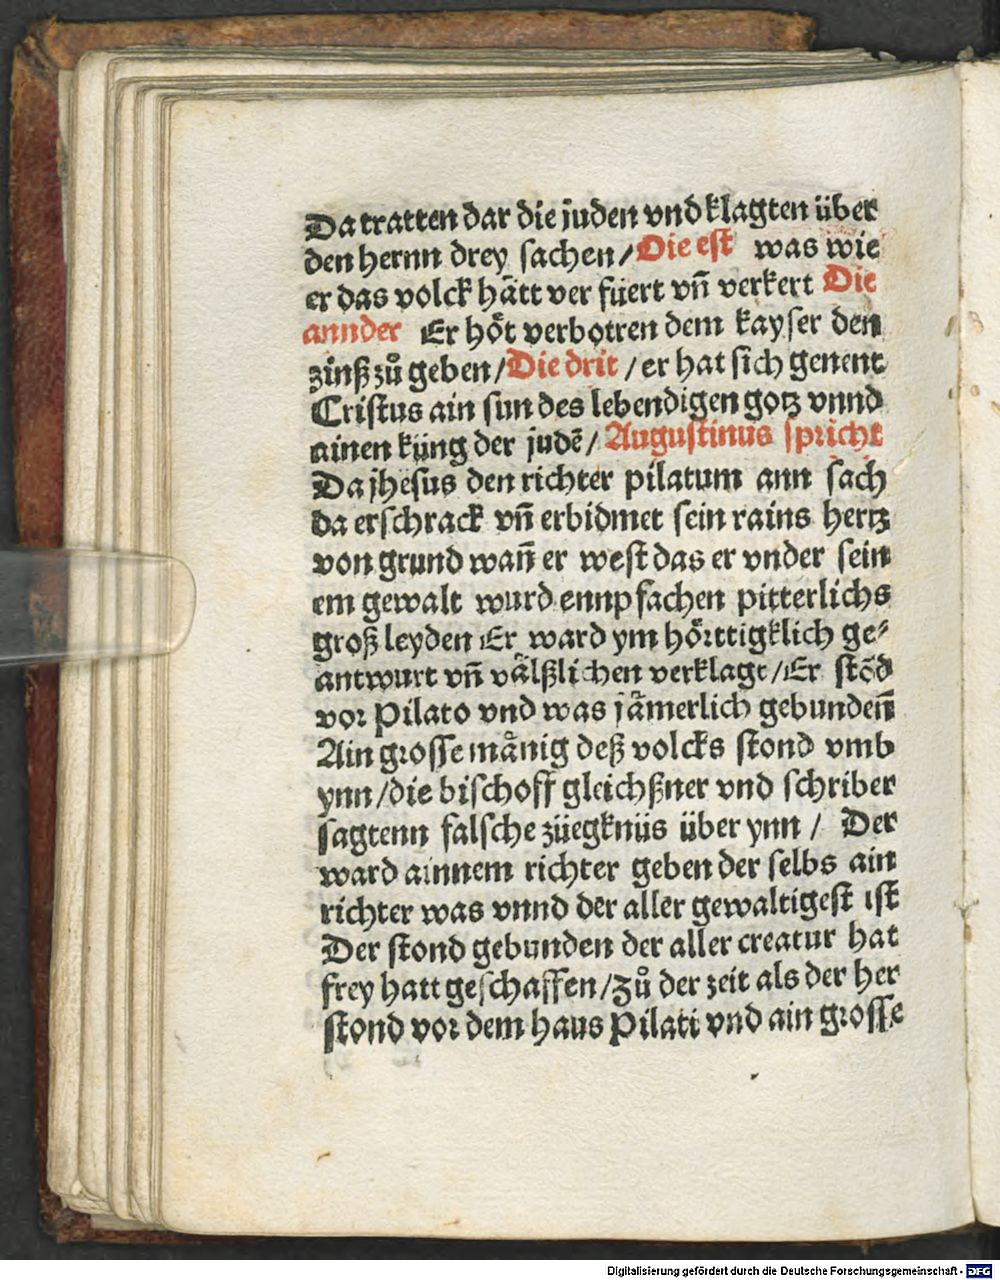 Da tratten dar die juden vnd klagten über
den hernn drey sachen / Die est was wie
er das volck hått ver füert vn̄ verkert Die
annder Er hot verbotren dem kayser den
zinß zů geben / Die drit / er hat sich genent
Cristus ain sun des lebendigen gotz vnnd
ainen küng der judē / Augustinus spricht
Da jhesus den richter pilatum ann sach
da erschrack vn̄ erbidmet sein rains hertz
von grund wan̄ er west das er vnder sein
em gewalt wurd ennpfachen pitterlichs
groß leyden Er ward ym hörttigklich ge⸗
antwurt vn̄ välßlichen verklagt / Er stöd
vor Pilato vnd was jåmerlich gebunden̄
Ain grosse månig deß volcks stond vmb
ynn / die bischoff gleichßner vnd schriber
sagtenn falsche züegknüs über ynn / Der
ward ainnem richter geben der selbs ain
richter was vnnd der aller gewaltigest ist
Der stond gebunden der aller creatur hat
frey hatt geschaffen / Zů der zeit als der her
stond vor dem haus Pilati vnd ain grosse
Digitalisierung gefördert durch die Deutsche Forschungsgemeinschaft - DFG